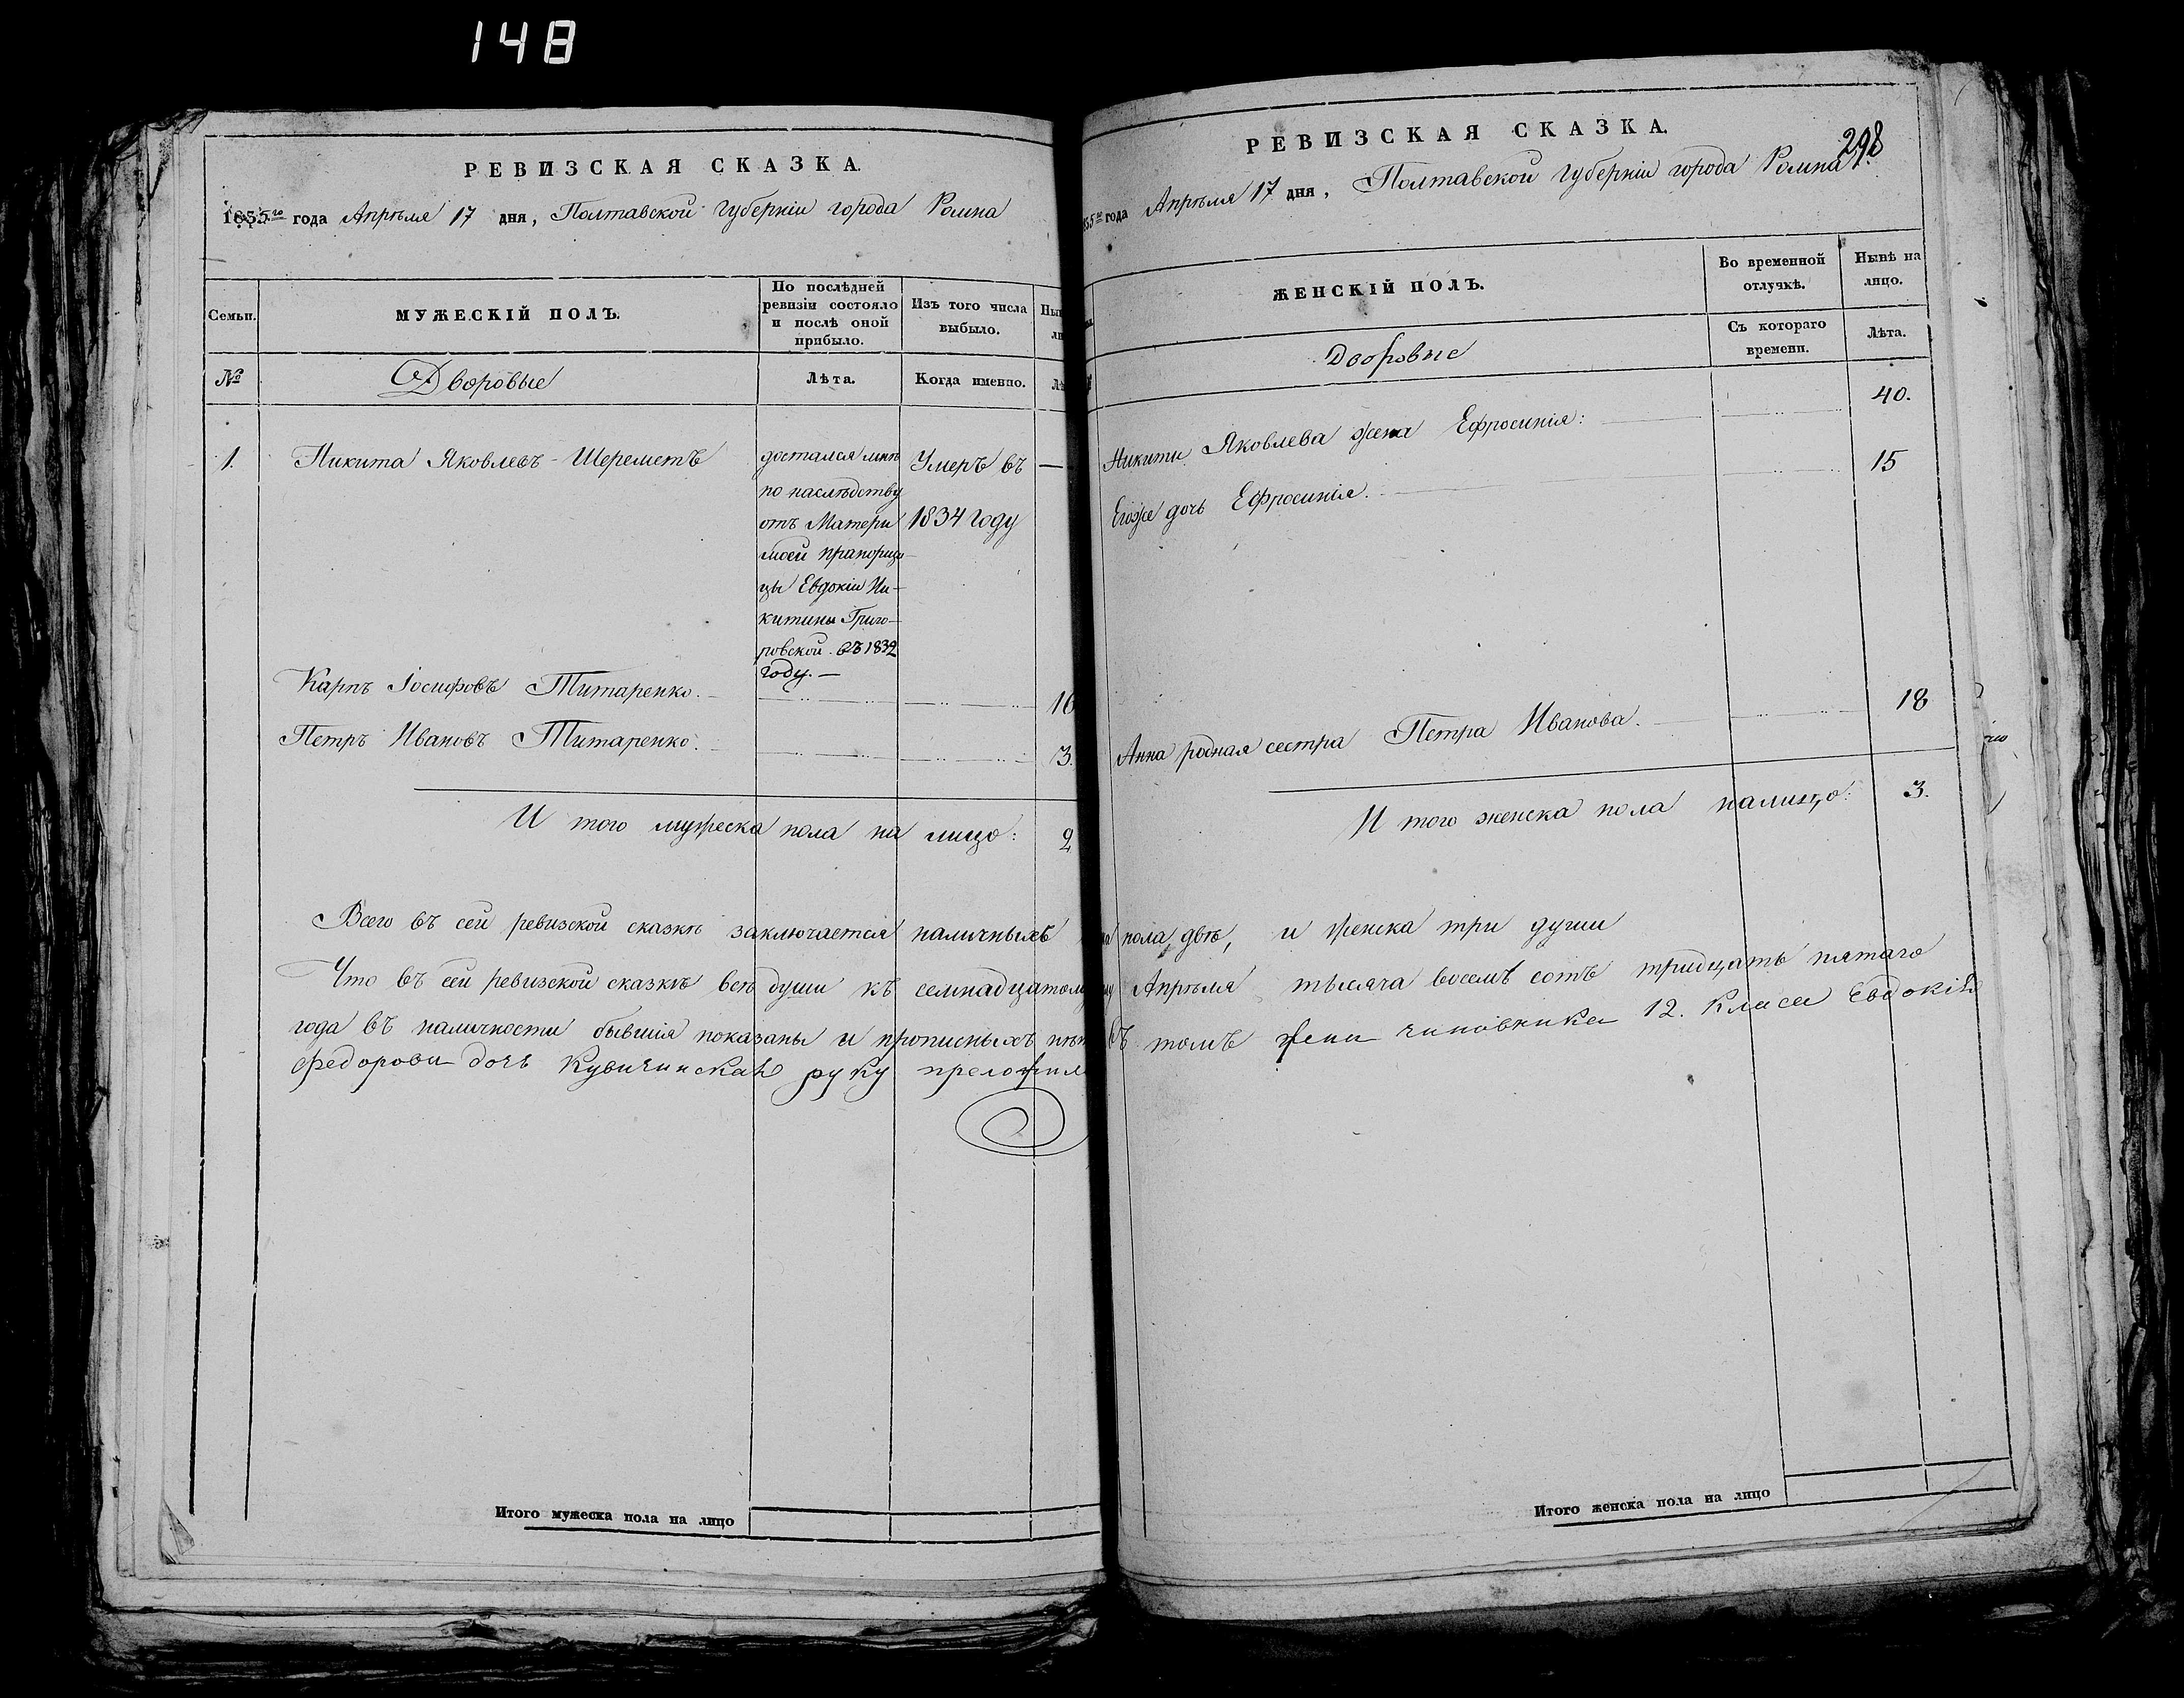 148
РЕВИЗСКАЯ СКАЗКА.
1835го года Апрѣля 17 дня, Полтавской губерніи города Ромна
Семьи.
МУЖЕСКІЙ ПОЛЪ.
По послѣдней ревизіи состояло и послѣ оной прибыло.
Изъ того числа выбыло.
№
Дворовые
Лѣта.
Когда именно.
1.
Никита Яковлевъ Шереметъ
достался мнѣ
по наслѣдству
отъ Матери
моей прапорщи-
цы Евдокіи Ни-
китины Григо-
ровской въ 1832
году. —
Умеръ въ
1834 году
—
Карпъ Іосифовъ Титаренко.
16
Петръ Ивановъ Титаренко.
3.
И того мужеска пола на лицо:
2
Всего въ сей ревизской сказкѣ заключается наличныхъ
Что въ сей ревизской сказкѣ всѣ души къ семнадцатому
года въ наличности бывшія показаны и прописныхъ нѣтъ
Федорова дочь Кувичинская руку
Итого мужеска пола на лицо
РЕВИЗСКАЯ СКАЗКА.
298
года Апрѣля 17 дня, Полтавской губерніи города Ромна
ЖЕНСКІЙ ПОЛЪ.
Во временной отлучкѣ.
Нынѣ на лицо.
Дворовые
Съ котораго времени.
Лѣта.
Никиты Яковлева жена Ефросинія:
40.
Егоже дочь Ефросинія.
15
Анна родная сестра Петра Иванова.
18
И того женска пола налицо:
3.
пола двѣ, и женска три души
Апрѣля тысяча восемъ сотъ тридцать пятаго
въ томъ жена чиновника 12. класа Евдокія
Итого женска пола на лицо